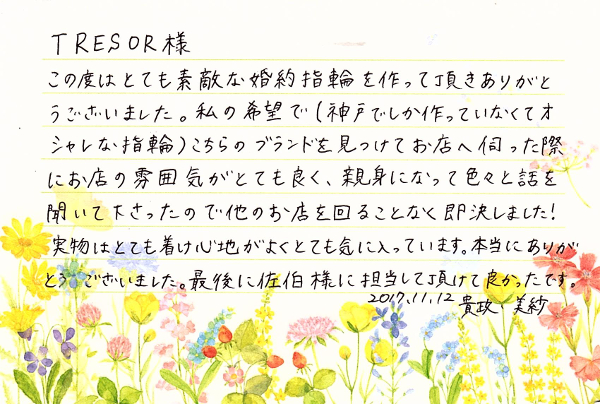 TRESOR様
この度はとても素敵な婚約指輪を作って頂きありがと
うございました。私の希望で(神戸でしか作っていなくてオ
シャレな指輪)こちらのブランドを見つけてお店へ伺った際
にお店の雰囲気がとても良く、親身になって色々と話を
聞いて下さったので他のお店を回ることなく即決しました!
実物はとても着け心地がよくとても気に入っています。本当にありが
とうございました。最後に佐伯様に担当して頂けて良かったです。
2017.11.12 貴政・美紗